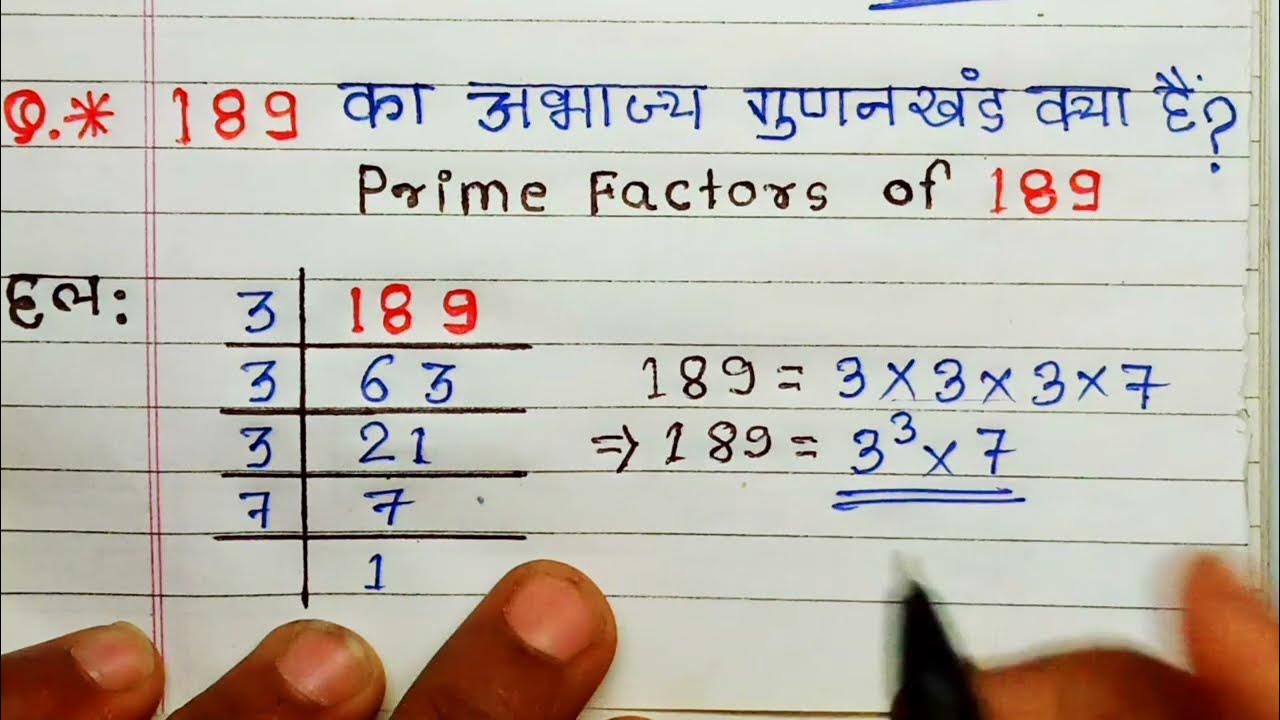 Q.* 189 का अभाज्य गुणनखंड क्या हैं?
Prime Factors of 189
हल:
3 | 189
3 | 63
3 | 21
7 | 7
1
189 = 3 × 3 × 3 × 7
⇒ 189 = 3³ × 7